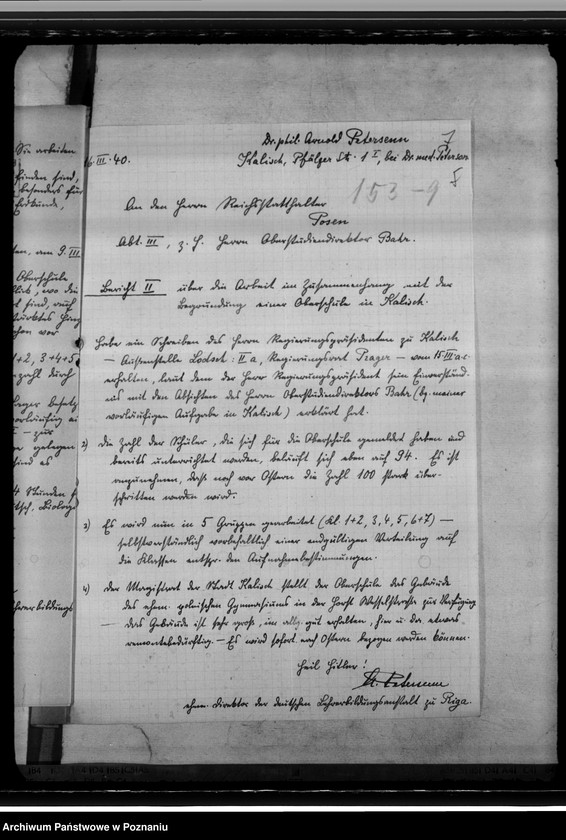 Sie arbeiten
finden sind,
besonders für
Erdkunde,
am 9. III
Oberschule
wo die
sind, auf
vor
1+2, 3+4+5
zahl durch
besetz
vorläufig
– zur
gelegen
sind es
4 Stunden
Biologie
Lehrerbildungs
Dr. phil. Arnold Petersenn
1
III. 40.
Kalisch, Pfälzer Str. 1 I, bei Dr. med. Petersen
153-9
An den Herrn Reichsstatthalter
Posen
Abt. III, z. H. Herrn Oberstudiendirektor Bahr.
Bericht II über die Arbeit im Zusammenhang mit der
Begründung einer Oberschule in Kalisch.
Habe ein Schreiben des Herrn Regierungspräsidenten zu Kalisch
– Aussenstelle Lodsch: II a, Regierungsrat Prager – vom 15 III a.c.
erhalten, laut dem der Herr Regierungspräsident sein Einverständ-
nis mit den Absichten des Herrn Oberstudiendirektors Bahr (bz. meiner
vorläufigen Aufgabe in Kalisch) erklärt hat.
2) die Zahl der Schüler, die sich für die Oberschule gemeldet haben und
bereits unterrichtet werden, beläuft sich eben auf 94. Es ist
anzunehmen, dass noch vor Ostern die Zahl 100 stark über-
schritten werden wird.
3) Es wird nun in 5 Gruppen gearbeitet (Kl. 1+2, 3, 4, 5, 6+7) –
selbstverständlich vorbehaltlich einer endgültigen Verteilung auf
die Klassen entspr. den Aufnahmebestimmungen.
4) der Magistrat der Stadt Kalisch stellt der Oberschule das Gebäude
des ehem. polnischen Gymnasiums in der Horst Wesselstrasse zur Verfügung
– das Gebäude ist sehr gross, im allg. gut erhalten, hier u. da etwas
remontebedürftig. – Es wird sofort nach Ostern bezogen werden können.
Heil Hitler!
A. Petersenn
ehem. Direktor der deutschen Lehrerbildungsanstalt zu Riga.
Archiwum Państwowe w Poznaniu